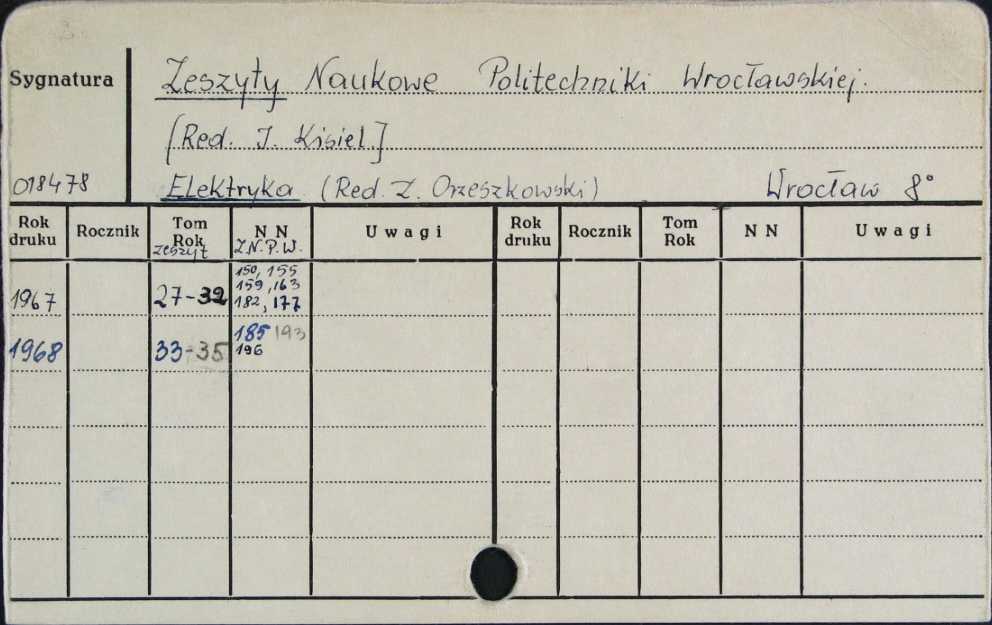 Sygnatura
Zeszyty Naukowe Politechniki Wrocławskiej.
[Red. I. Kisiel.]
018478
Elektryka (Red. Z. Orzeszkowski) Wrocław 8°
Rok druku Rocznik Tom Rok zeszyt N N Z.N.P.W. Uwagi Rok druku Rocznik Tom Rok N N Uwagi
1967 27-32 150, 155
159, 163
182, 177
1968 33-35 185 193
196